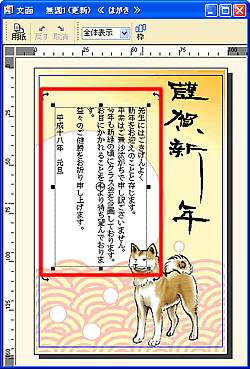 文面　無題1(更新) ≪ はがき ≫
用紙 戻す 取消 全体表示 枠
謹賀新年
先生にはごきげんよく
新年をお迎えのことと存じます。
平素はご無沙汰がちで申し訳ございません。
今年も新緑の頃にクラス会を企画しております。
お目にかかれることを心より待ち望んでおりま
す。
益々のご健勝をお祈り申し上げます。
平成十八年　元旦